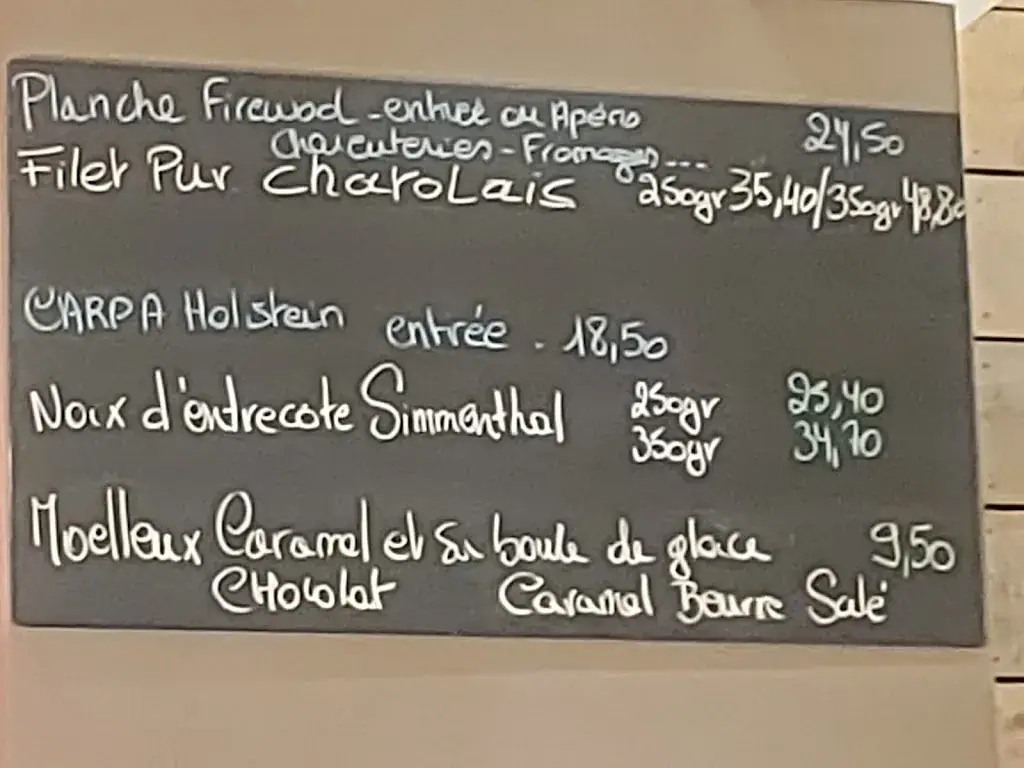 Planche Firewod - entrée ou Apéro 24,50
Charcuteries - Fromages ...
Filet Pur CharoLais 250gr 35,40/350gr 48,80
CARPA Holstein entrée - 18,50
Noix d'entrecote Simmenthal 250gr 25,40
350gr 34,70
Moelleux Caramel et sa boule de glace 9,50
CHocolat Caramel Beurre Salé